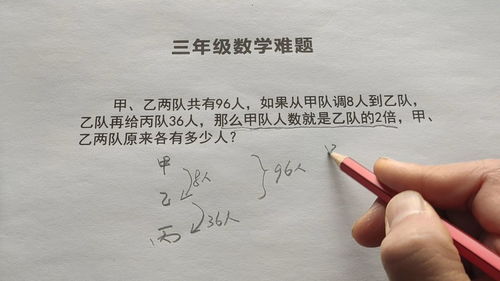 三年级数学难题
甲、乙两队共有96人，如果从甲队调8人到乙队，
乙队再给丙队36人，那么甲队人数就是乙队的2倍，甲、
乙两队原来各有多少人？
甲
8人
96人
乙
36人
丙